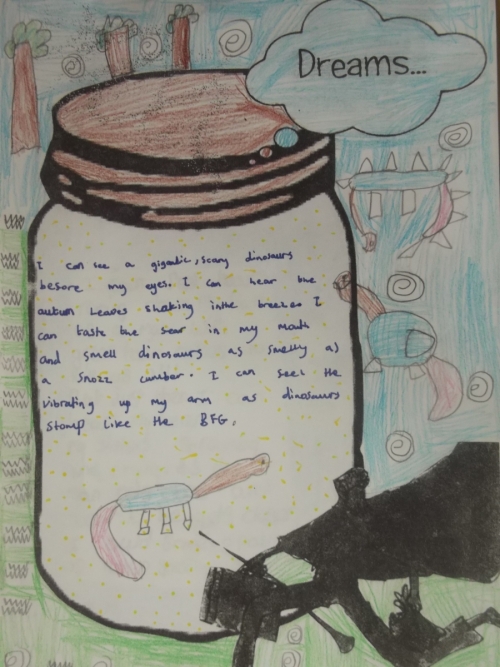 Dreams...
I can see a gigantic, scary dinosaurs
besore my eyes. I can hear the
autum leaves shaking inthe breeze. I
can taste the sear in my mouth
and smell dinosaurs as smelly as
a snozz cumber. I can seel the
vibrating up my arm as dinosaurs
stomp like the BFG.